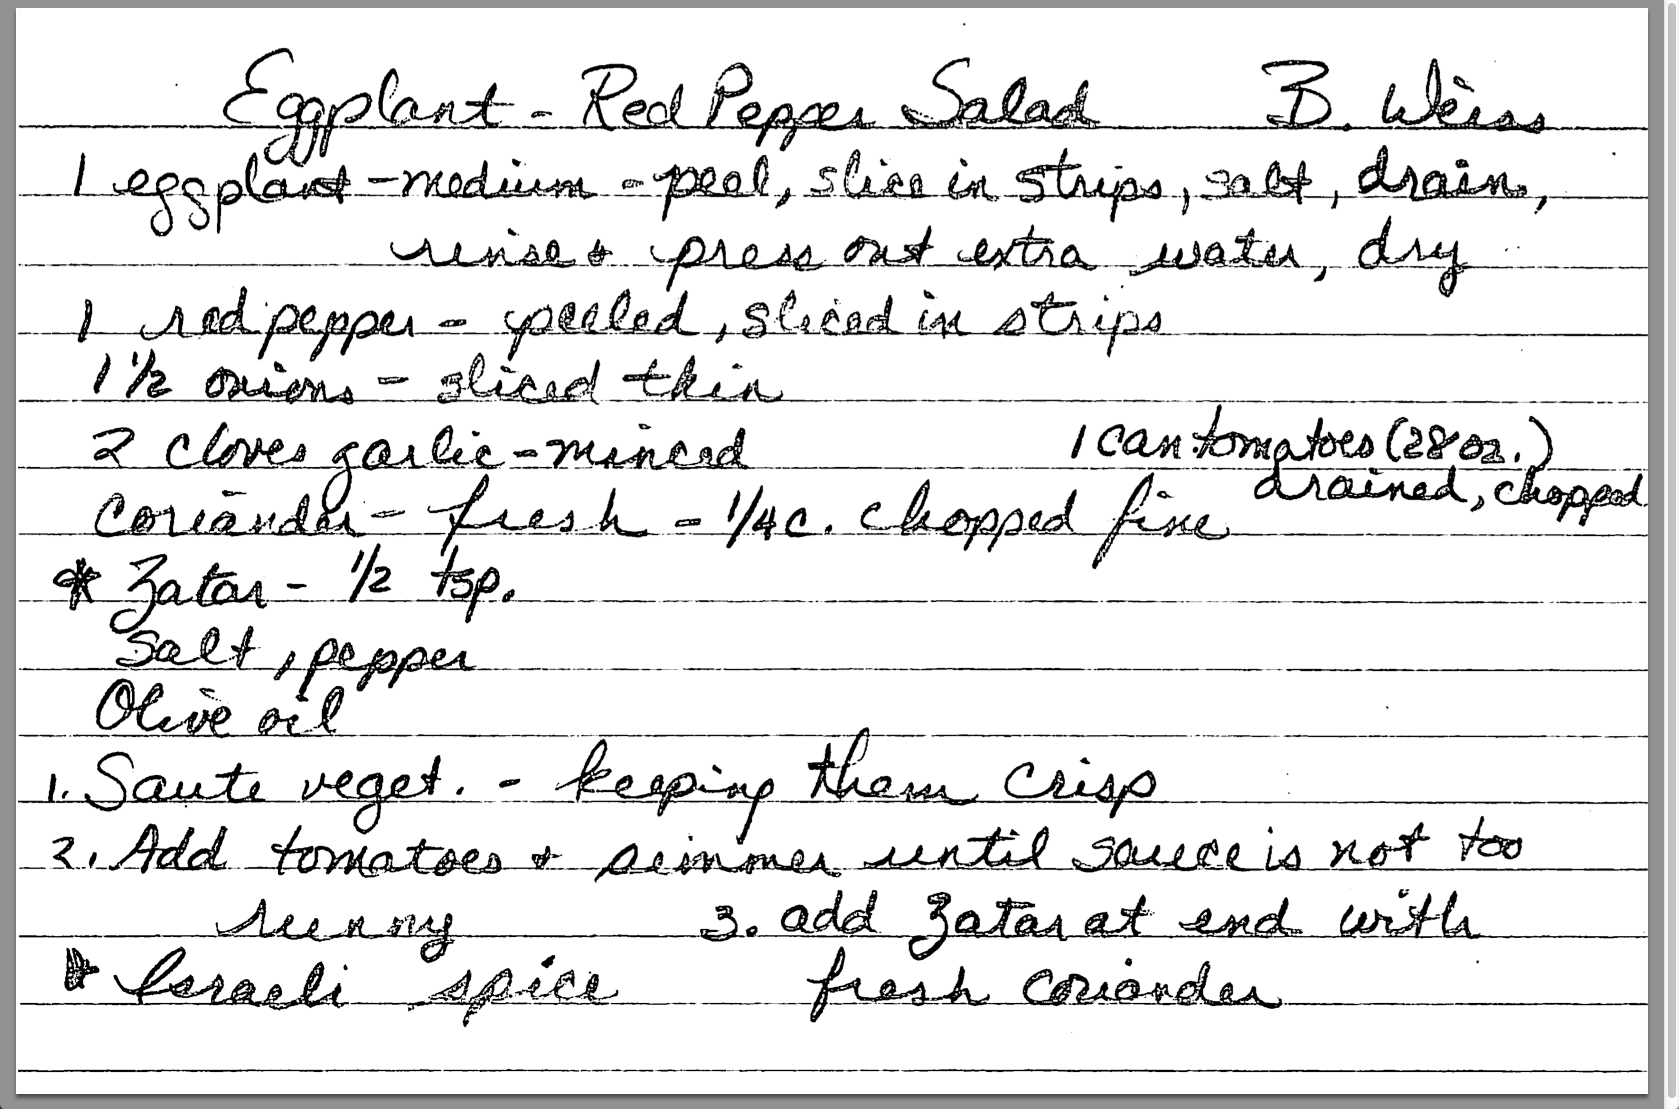 Eggplant - Red Pepper Salad B. Weiss
1 eggplant - medium - peel, slice in strips, salt, drain,
rinse & press out extra water, dry
1 red pepper - peeled, sliced in strips
1 1/2 onions - sliced thin
2 cloves garlic - minced
1 can tomatoes (28 oz.)
drained, chopped
Coriander - fresh - 1/4 c. chopped fine
* Zatar - 1/2 tsp.
Salt, pepper
Olive oil
1. Saute veget. - keeping them crisp
2. Add tomatoes & simmer until sauce is not too
runny 3. add Zatar at end with
* Israeli spice fresh coriander